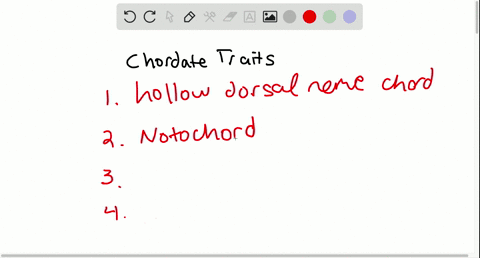 Chordate Traits
1. hollow dorsal nerve chord
2. Notochord
3.
4.